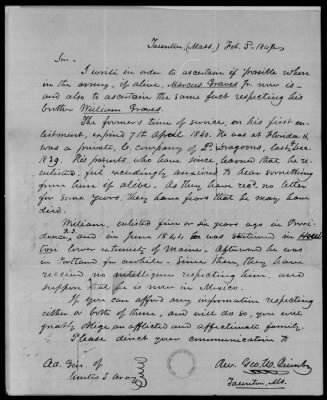 Taunton, (Mass.) Feb. 3d. 1847
Sir—
I write in order to ascertain if possible where
in the army, if alive, Marcus Graves Jr. now is—
and also to ascertain the same fact respecting his
brother William Graves.
The former's time of service, on his first en-
listment, expired 7th April 1840. He was at Florida &
was a private, C. company of 2d. Dragoons, last Dec.
1839. His parents, who have since learned that he re-
enlisted, feel exceedingly anxious to hear something
from him if alive. As they have recd. no letter
for some years, they have fears that he may have
died.
William, enlisted five or six years ago in Provi-
dence, and in June 1841, was stationed in Houl-
ton lower extremity of Maine. Afterward he was
in Portland for awhile. Since then, they have
received no intelligence respecting him, and
suppose that he is now in Mexico.
If you can afford any information respecting
either or both of these, and will do so, you will
greatly oblige an afflicted and affectionate family.
Please direct your communication to
Ad. Gen. of
United S. Army
Rev. Geo. W. Quinby
Taunton, Ms.